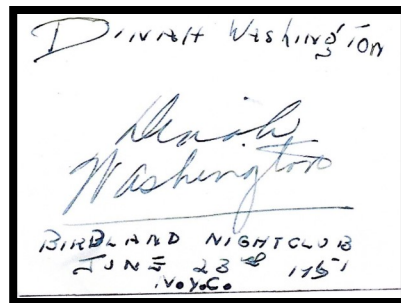 DINAH WASHINGTON
Dinah
Washington
BIRDLAND NIGHTCLUB
JUNE 28th 1951
N.Y.C.